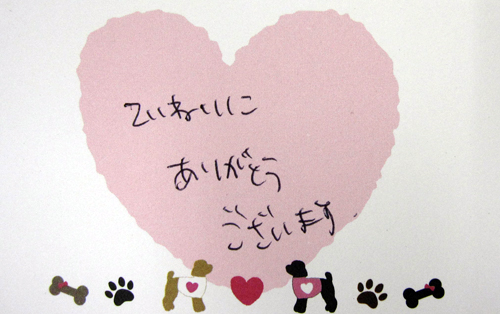 ていねいに
ありがとう
ございます